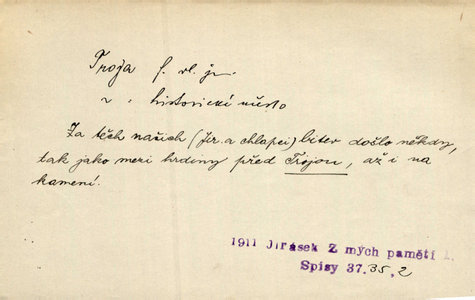 Troja f. vl. jm.
z. historické město
Za těch našich (Jir. a chlapci) bitev došlo někdy,
tak jako mezi hrdiny před Trojou, až i na
kamení.
1911 Jirásek Z mých pamětí 1.
Spisy 37.35,2